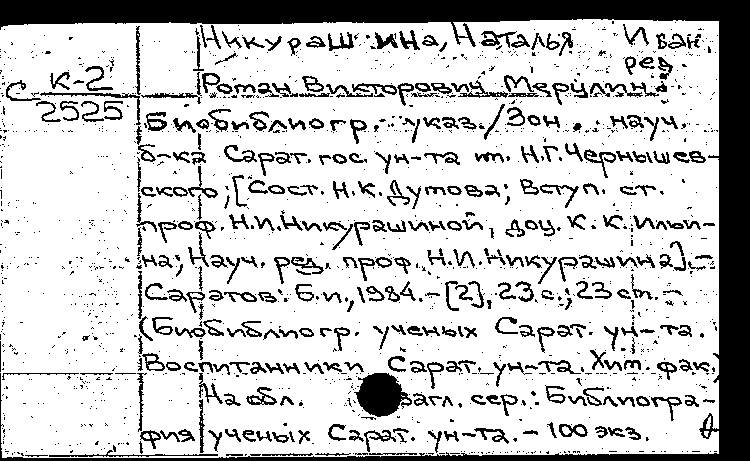 Никурашина, Наталья Иван.
ред.
С К-2
2525
Роман Викторович Мерцлин.
Биобиблиогр. указ./Зон. науч.
б-ка Сарат. гос. ун-та им. Н.Г. Чернышев-
ского; [Сост. Н.К. Дутова; Вступ. ст.
проф. Н.И. Никурашиной, доц. К.К. Ильи-
на; Науч. ред. проф. Н.И. Никурашина].-
Саратов: Б.и., 1984.-[2], 23 с.; 23 см.-
(Биобиблиогр. ученых Сарат. ун-та.
Воспитанники Сарат. ун-та. Хим. фак.)
На обл. загл. сер.: Библиогра-
фия ученых Сарат. ун-та.-100 экз.